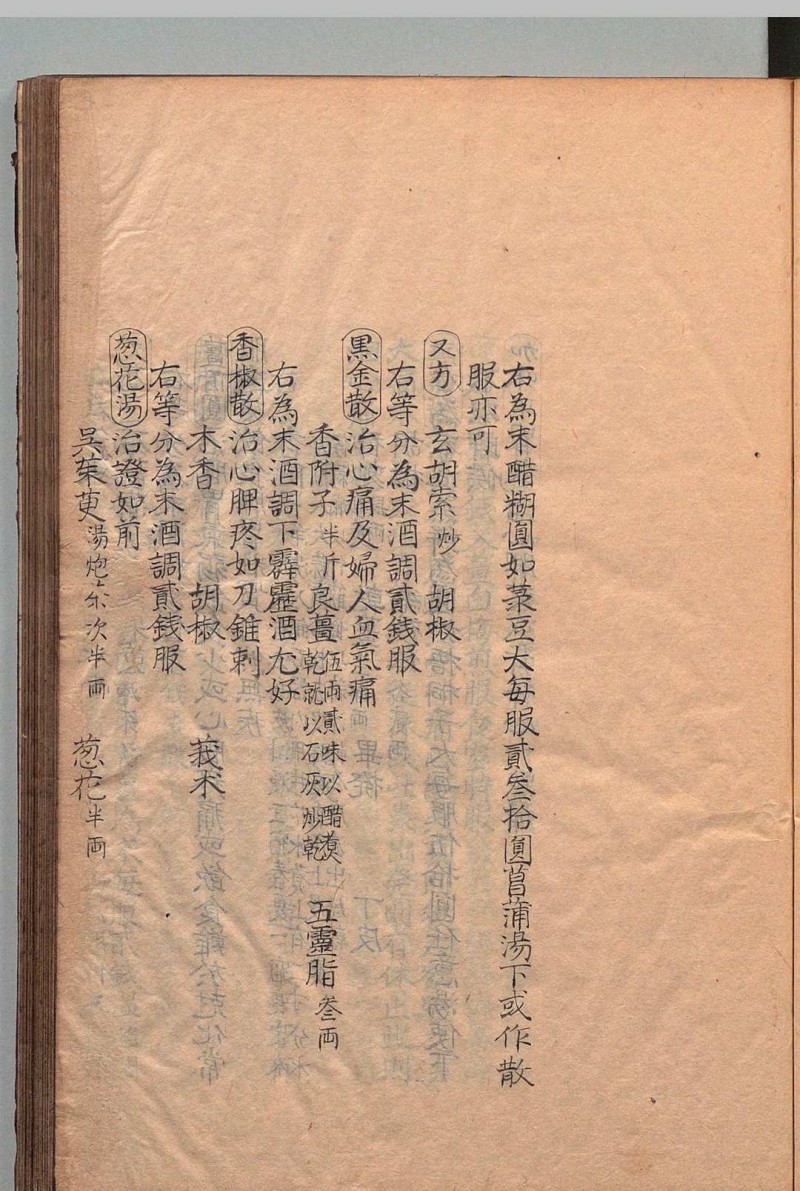 右為末醋糊圓如菉豆大每服貳叁拾圓菖蒲湯下或作散
服亦可
又方 玄胡索炒 胡椒
右等分為末酒調貳錢服
黑金散 治心痛及婦人血氣痛
香附子半斤 良薑伍兩貳味以醋煑乾就以石灰炒乾 五靈脂叁両
右為末酒調下霹靂酒尤好
香椒散 治心脾疼如刀錐刺
木香 胡椒 莪术
右等分為末酒調貳錢服
葱花湯 治證如前
吳茱萸湯炮六次半両 葱花半両